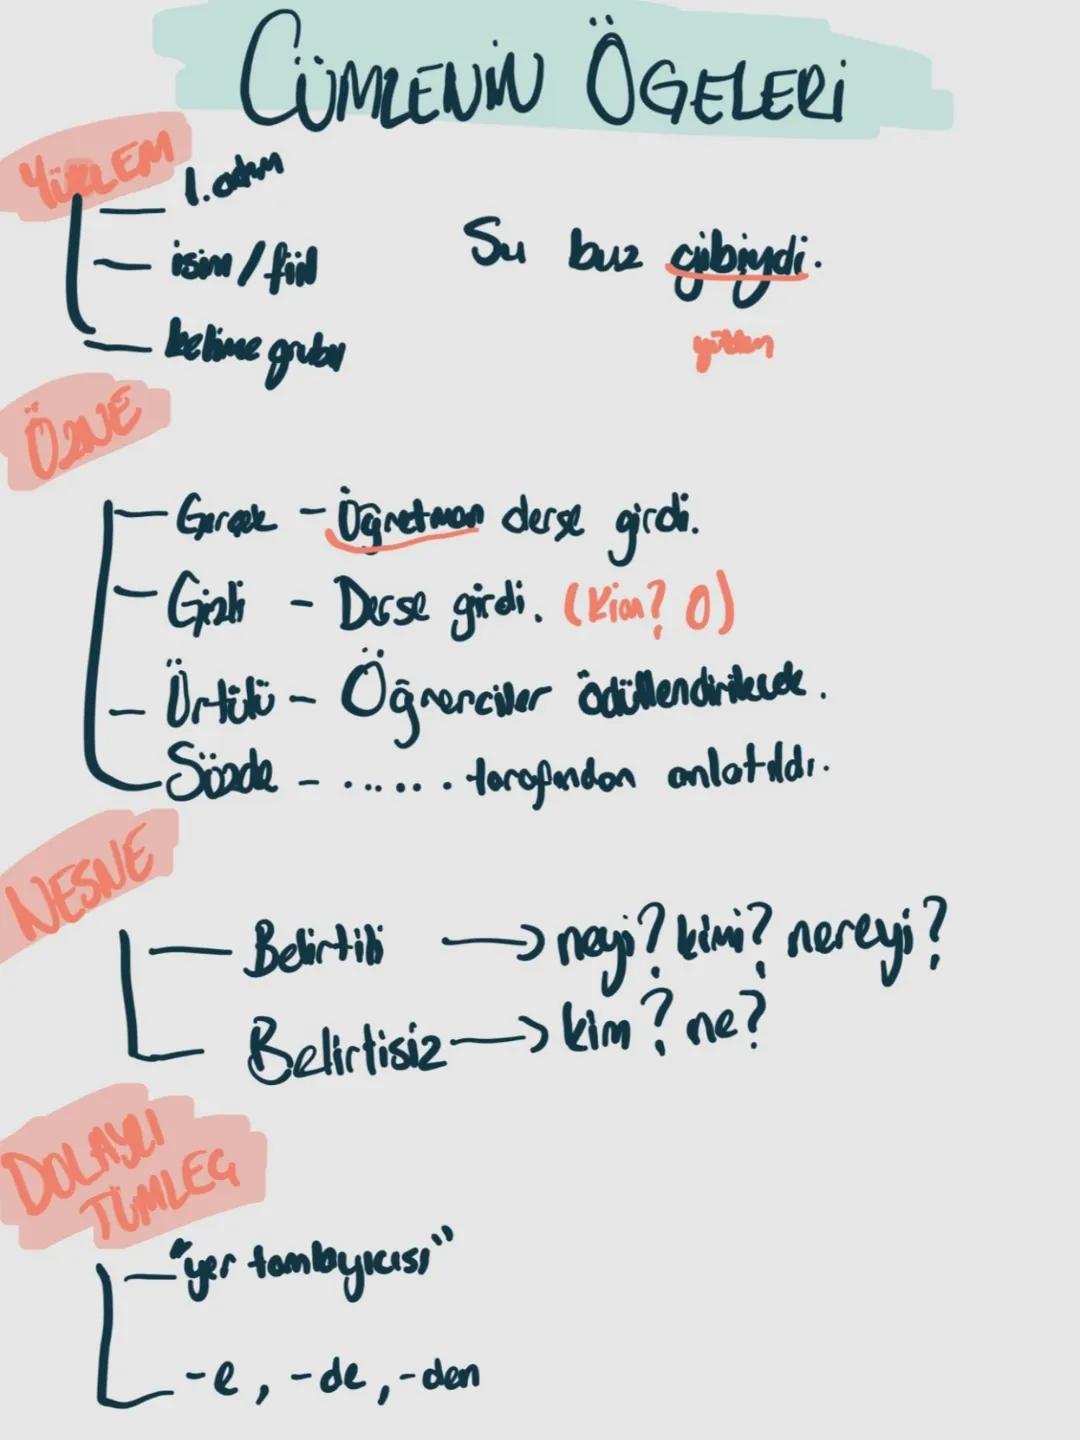 CÜMLENİN ÖGELERİ
YÜKLEM
1. adım
isim / fiil
kelime grubu
Su buz gibiydi.
yüklem
ÖZNE
Gerçek - Öğretmen derse girdi.
Gizli - Derse girdi. (Kim? O)
Örtülü - Öğrenciler ödüllendirilecek.
Sözde - ...... tarafından anlatıldı.
NESNE
Belirtili → neyi? kimi? nereyi?
Belirtisiz → kim? ne?
DOLAYLI
TÜMLEÇ
"yer tamlayıcısı"
-e, -de, -den